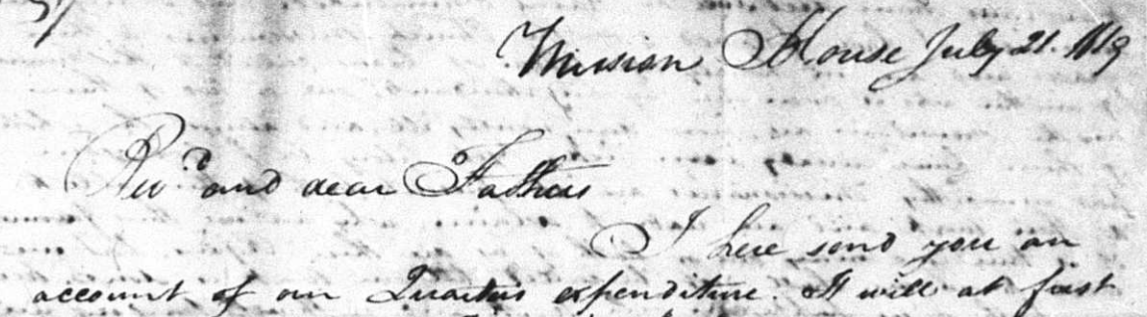 Mission House July 21. 1819
Revd and dear Fathers
I here send you an
account of our Quarters expenditure. It will at first